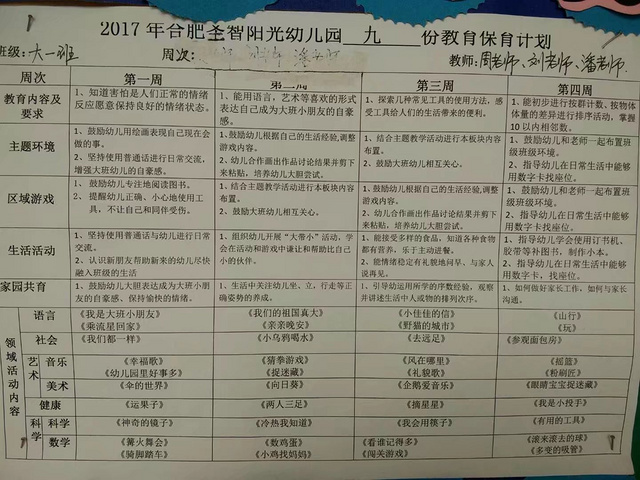 2017年合肥圣智阳光幼儿园 九 份教育保育计划
班级: 大一班 周次: 教师: 周老师、刘老师、潘老师
周次 第一周 第二周 第三周 第四周
教育内容及要求
1、知道害怕是人们正常的情绪
反应愿意保持良好的情绪状态。
1、能用语言，艺术等喜欢的形式
表达自己成为大班小朋友的自豪
感。
1、探索几种常见工具的使用方法，感
受工具给人们的生活带来的便利。
1、能初步进行按群计数、按物
体量的差异进行排序活动，掌握
10以内相邻数。
主题环境
1、鼓励幼儿用绘画表现自己现在会
做的事。
2、坚持使用普通话进行日常交流，
增强大班幼儿的自豪感。
1、鼓励幼儿根据自己的生活经验,调整
游戏内容。
2、幼儿合作画出作品讨论结果并剪下
来粘贴，培养幼儿大胆尝试。
1、结合主题教学活动进行本板块内容
布置。
2、鼓励大班幼儿相互关心。
1、鼓励幼儿和老师一起布置班
级班环境。
2、指导幼儿在日常生活中能够
用数字卡找座位。
区域游戏
1、鼓励幼儿专注地阅读图书。
2、提醒幼儿正确、小心地使用工
具，不让自己和同伴受伤。
1、结合主题教学活动进行本板块内容
布置。
2、鼓励大班幼儿相互关心。
1、鼓励幼儿根据自己的生活经验,调整
游戏内容。
2、幼儿合作画出作品讨论结果并剪下
来粘贴，培养幼儿大胆尝试。
1、鼓励幼儿和老师一起布置班
级班环境。
2、指导幼儿在日常生活中能够
用数字卡找座位。
生活活动
1、坚持使用普通话与幼儿进行日常
交流。
2、认识新朋友帮助新来的幼儿尽快
融入班级的生活
1、组织幼儿开展“大带小”活动，学
会在活动和游戏中谦让和帮助比自己
小的伙伴。
1、能接受多样的食品，知道各种食物
都有营养。乐于主动进餐。
2、能情绪稳定有礼貌地问早、与家人
说再见。
1、指导幼儿学会用订书机、
胶带等补图书，制作小本。
2、指导幼儿在日常生活中能够
用数字，找座位。
家园共育
1、鼓励幼儿大胆表达成为大班小朋
友的自豪感、保持愉快的情绪。
1、生活中关注幼儿坐、立，行走等正
确姿势的养成。
1、引导幼运用所学的序数经验，观察
并讲述生活中人或物的排列次序。
1、如何做好家长工作，如何与家长
沟通。
领域活动内容
语言 《我是大班小朋友》 《我们的祖国真大》 《小佳佳的信》 《山行》
《乘流星回家》 《亲亲晚安》 《野猫的城市》 《玩》
社会 《我们都一样》 《小乌鸦喝水》 《去远足》 《参观面包房》
艺术 音乐 《幸福歌》 《猜拳游戏》 《风在哪里》 《摇篮》
《幼儿园里好事多》 《捉迷藏》 《礼貌歌》 《粉刷匠》
美术 《伞的世界》 《向日葵》 《企鹅爱音乐》 《眼睛宝宝捉迷藏》
健康 《运果子》 《两人三足》 《摘星星》 《我是小投手》
科学 科学 《神奇的镜子》 《冷热我知道》 《我会用筷子》 《有用的工具》
数学 《篝火舞会》 《数鸡蛋》 《看谁记得多》 《滚来滚去的球》
《骑脚踏车》 《小鸡找妈妈》 《闯关游戏》 《多变的吸管》